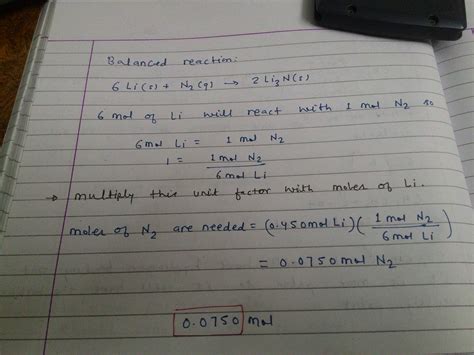 Balanced reaction:
6 Li(s) + N₂(g) → 2 Li₃N(s)
6 mol of Li will react with 1 mol N₂ so
6 mol Li = 1 mol N₂
1 = 1 mol N₂ / 6 mol Li
→ multiply this unit factor with moles of Li.
moles of N₂ are needed = (0.450 mol Li) (1 mol N₂ / 6 mol Li)
= 0.0750 mol N₂
0.0750 mol